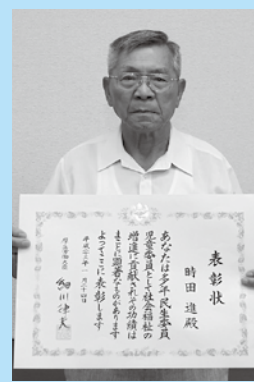 表彰状
時田 進殿
あなたは多年民生委員
児童委員として社会福祉の
増進に貢献されその功績は
まことに顕著なものがあります
よってここに表彰します
平成二十三年一月二十四日
厚生労働大臣
細川律夫